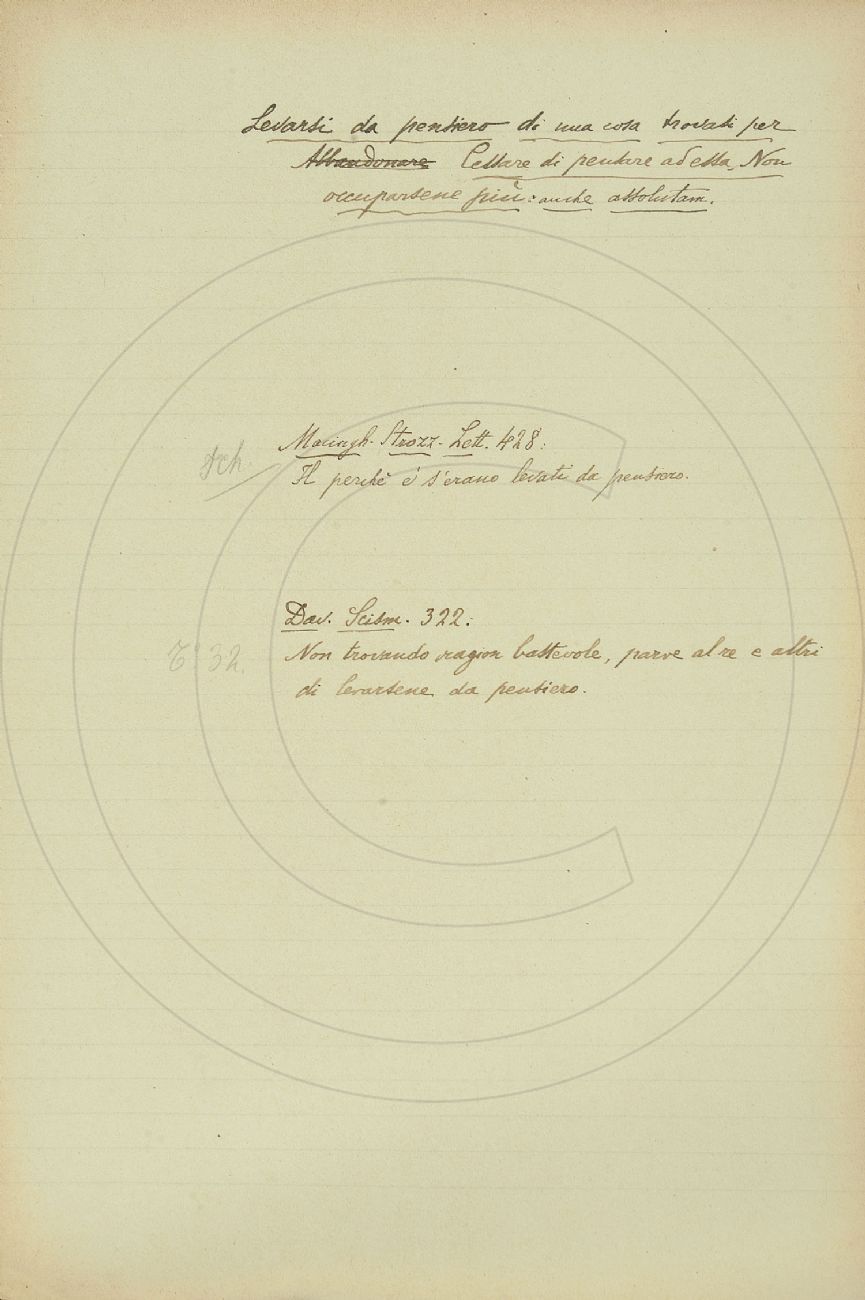 Levarsi da pensiero di una cosa trovasi per
Abbandonare Cessare di pensare ad essa, Non
occuparsene più: anche assolutam.
Macingh. Strozz. Lett. 428:
Il perchè e' s'erano levati da pensiero.
Dav. Scism. 322:
Non trovando ragion bastevole, parve al re e altri
di levarsene da pensiero.